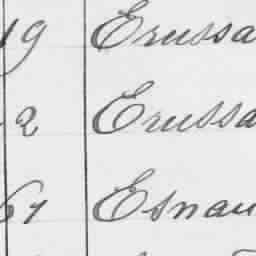 19 Erussa
2 Erussa
61 Esnau